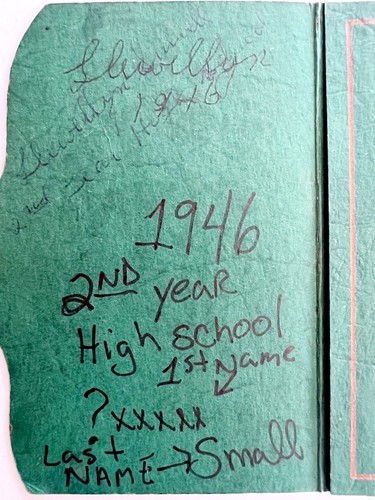 Llewellyn
1946
Llewellyn
2nd Year High
1946
2ND year
High school
1st Name
?xxxxx
Last Name → Small